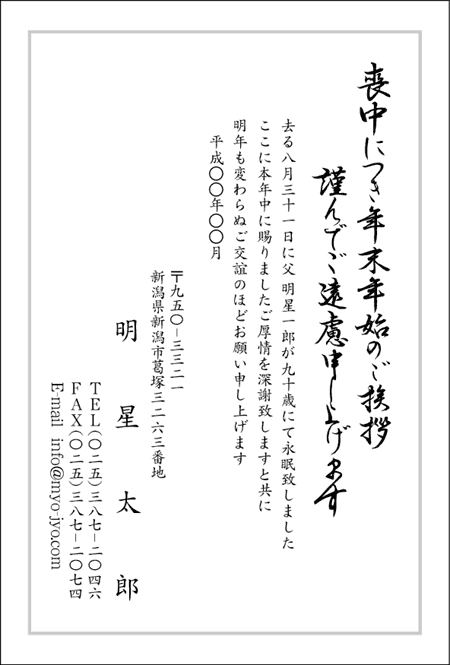 喪中につき年末年始のご挨拶
謹んでご遠慮申し上げます
去る八月三十一日に父 明星一郎が九十歳にて永眠致しました
ここに本年中に賜りましたご厚情を深謝致しますと共に
明年も変わらぬご交誼のほどお願い申し上げます
平成〇〇年〇〇月
〒九五〇－三三二一
新潟県新潟市葛塚三二六三番地
明 星 太 郎
TEL(〇二五)三八七－二〇四六
FAX(〇二五)三八七－二〇七四
E-mail info@myo-jyo.com